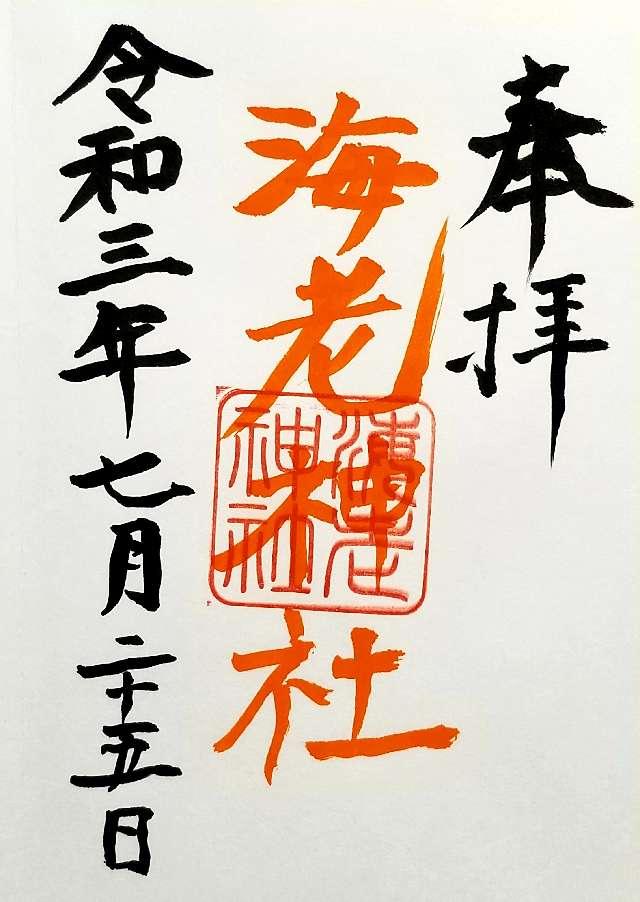 奉拝
海老神社
海老神社
令和三年七月二十五日